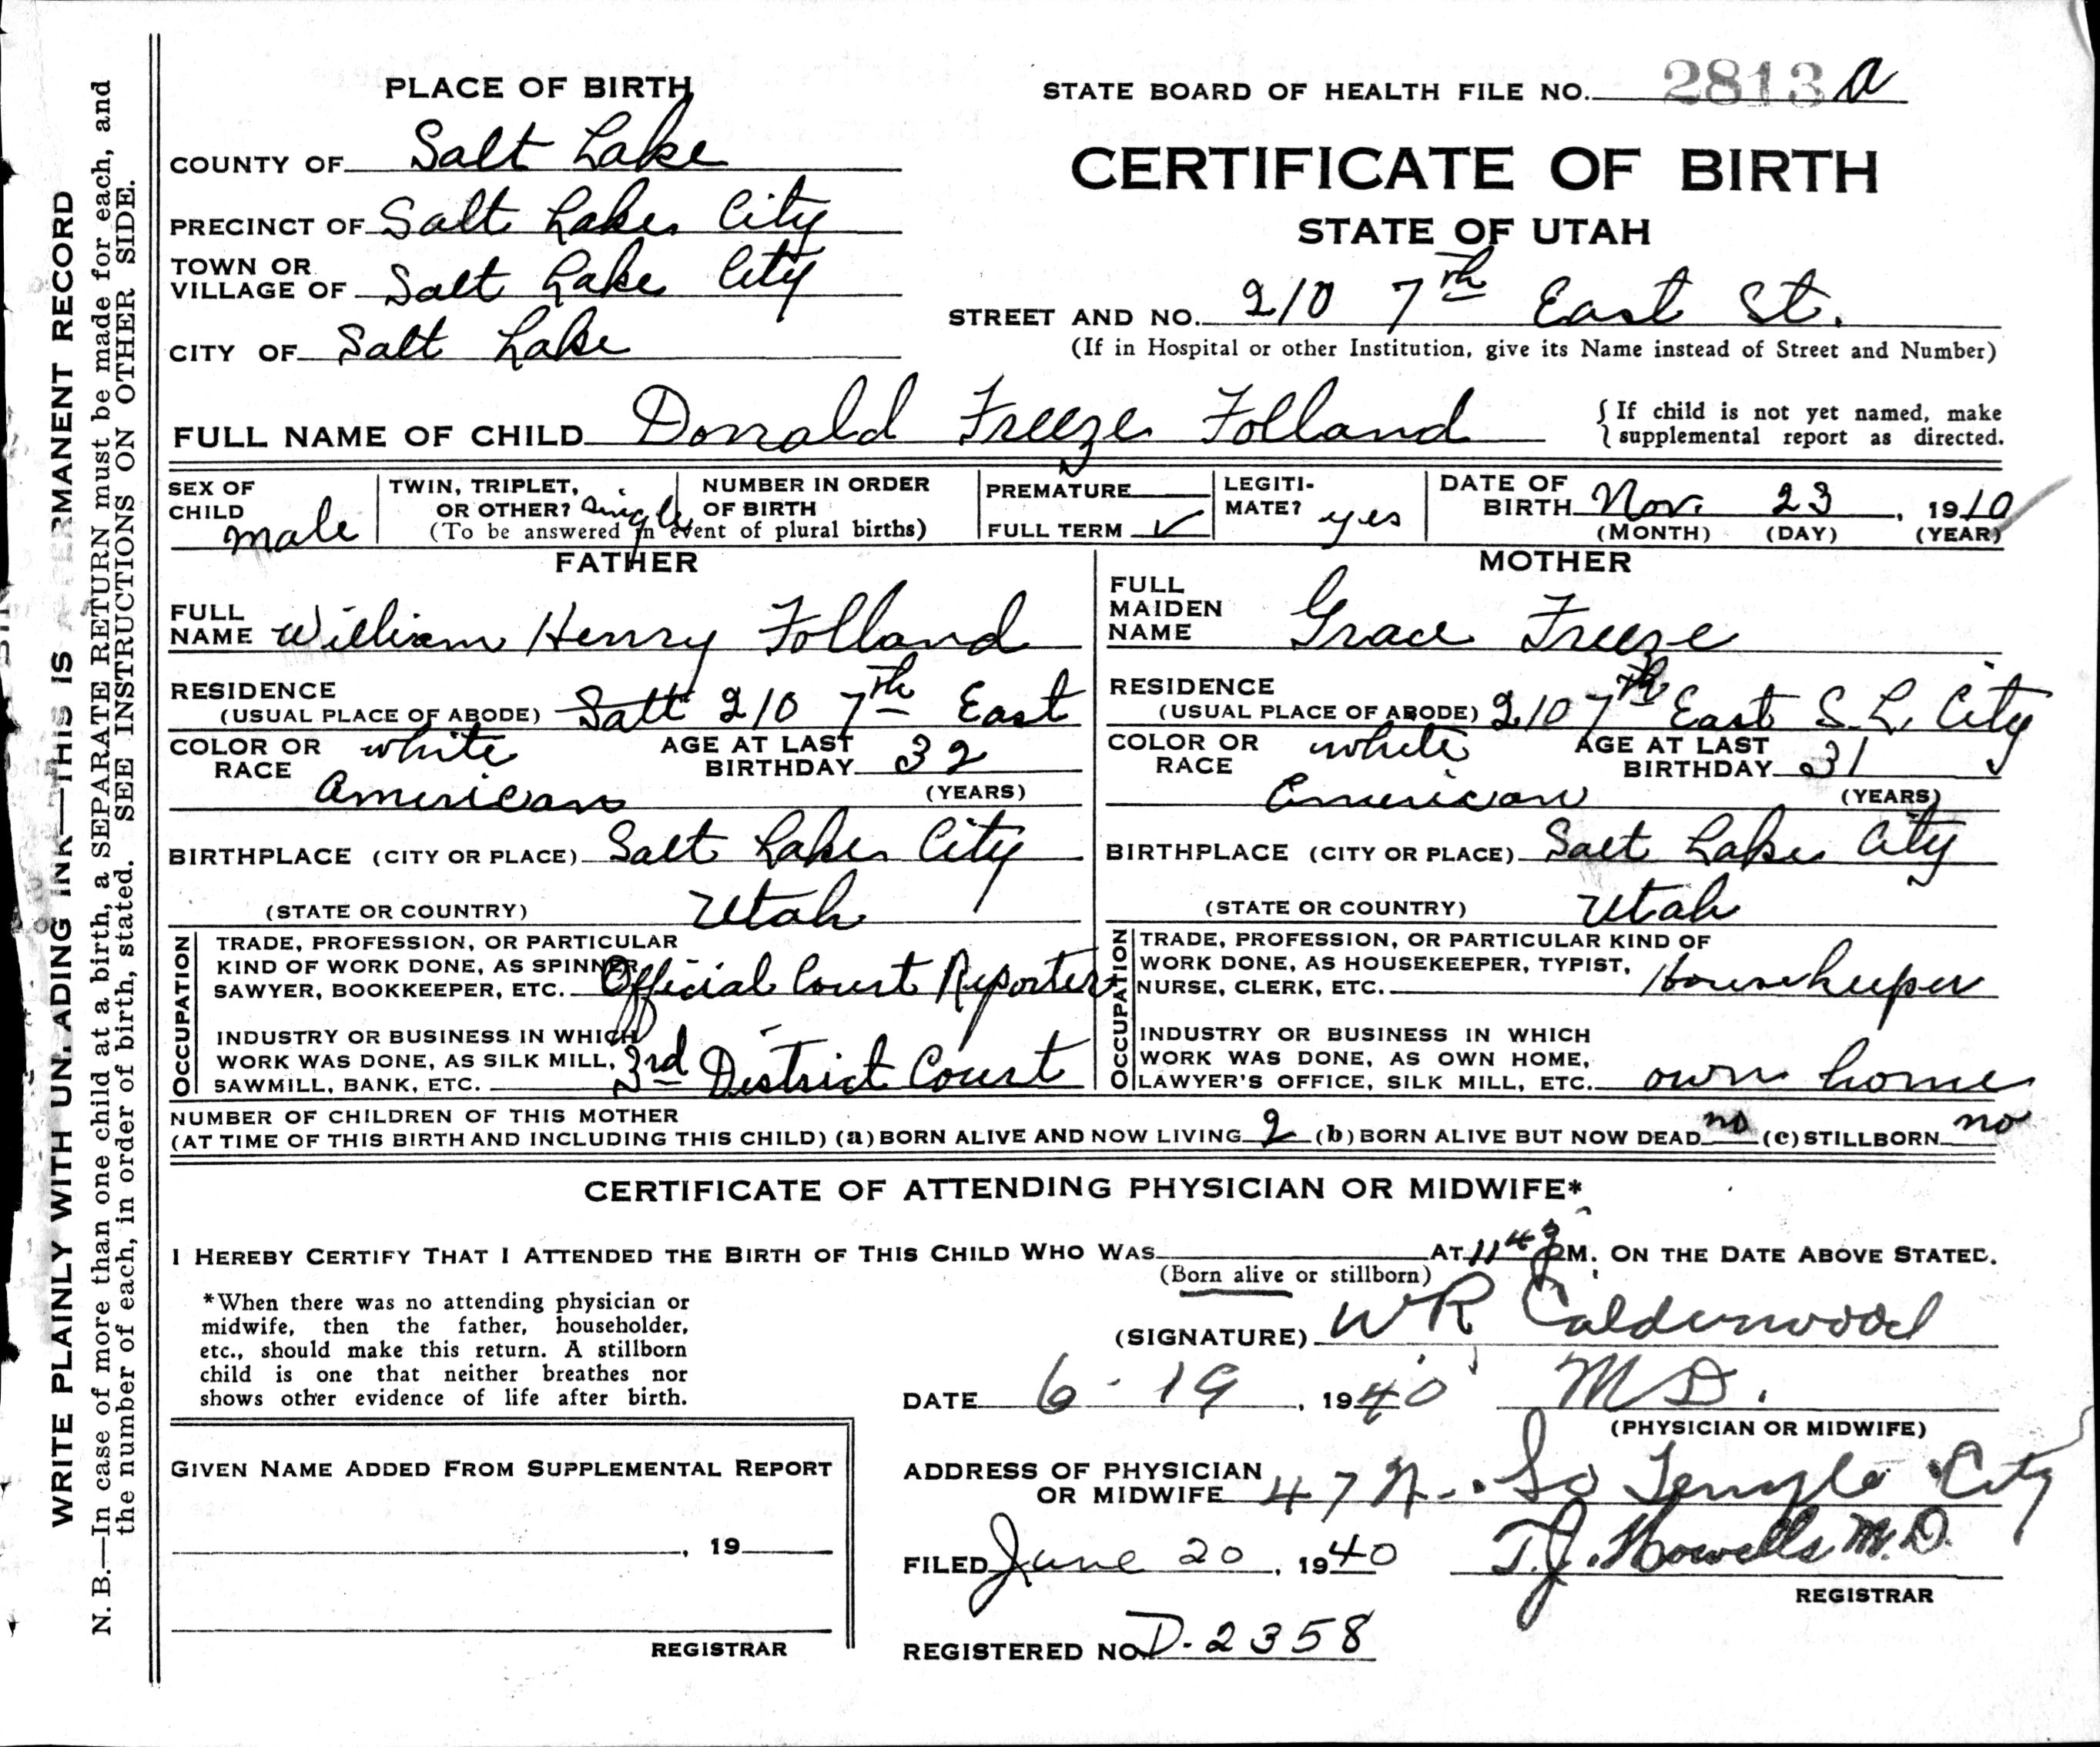 WRITE PLAINLY WITH UN. ADING INK—THIS IS A RMANENT RECORD
N. B.—In case of more than one child at a birth, a SEPARATE RETURN must be made for each, and
the number of each, in order of birth, stated. SEE INSTRUCTIONS ON OTHER SIDE.
PLACE OF BIRTH
STATE BOARD OF HEALTH FILE NO. 2813 a
COUNTY OF Salt Lake
CERTIFICATE OF BIRTH
PRECINCT OF Salt Lake City
STATE OF UTAH
TOWN OR
VILLAGE OF Salt Lake City
STREET AND NO. 210 7th East St.
CITY OF Salt Lake
(If in Hospital or other Institution, give its Name instead of Street and Number)
FULL NAME OF CHILD Donald Freeze Folland
{ If child is not yet named, make
supplemental report as directed.
SEX OF
CHILD male
TWIN, TRIPLET,
OR OTHER? single
NUMBER IN ORDER
OF BIRTH
(To be answered in event of plural births)
PREMATURE
FULL TERM ✓
LEGITI-
MATE? yes
DATE OF
BIRTH Nov. 23, 1910
(MONTH) (DAY) (YEAR)
FATHER
FULL
NAME William Henry Folland
RESIDENCE
(USUAL PLACE OF ABODE) Salt 210 7th East
COLOR OR
RACE white
American
AGE AT LAST
BIRTHDAY 32
(YEARS)
BIRTHPLACE (CITY OR PLACE) Salt Lake City
(STATE OR COUNTRY) Utah
OCCUPATION
TRADE, PROFESSION, OR PARTICULAR
KIND OF WORK DONE, AS SPINNER,
SAWYER, BOOKKEEPER, ETC. Official Court Reporter
INDUSTRY OR BUSINESS IN WHICH
WORK WAS DONE, AS SILK MILL,
SAWMILL, BANK, ETC. 3rd District Court
MOTHER
FULL
MAIDEN
NAME Grace Freeze
RESIDENCE
(USUAL PLACE OF ABODE) 210 7th East S. L. City
COLOR OR
RACE white
American
AGE AT LAST
BIRTHDAY 31
(YEARS)
BIRTHPLACE (CITY OR PLACE) Salt Lake City
(STATE OR COUNTRY) Utah
OCCUPATION
TRADE, PROFESSION, OR PARTICULAR KIND OF
WORK DONE, AS HOUSEKEEPER, TYPIST,
NURSE, CLERK, ETC. Housekeeper
INDUSTRY OR BUSINESS IN WHICH
WORK WAS DONE, AS OWN HOME,
LAWYER'S OFFICE, SILK MILL, ETC. own home
NUMBER OF CHILDREN OF THIS MOTHER
(AT TIME OF THIS BIRTH AND INCLUDING THIS CHILD) (a) BORN ALIVE AND NOW LIVING 2 (b) BORN ALIVE BUT NOW DEAD no (c) STILLBORN no
CERTIFICATE OF ATTENDING PHYSICIAN OR MIDWIFE*
I HEREBY CERTIFY THAT I ATTENDED THE BIRTH OF THIS CHILD WHO WAS AT 11 43 PM. ON THE DATE ABOVE STATED.
(Born alive or stillborn)
*When there was no attending physician or
midwife, then the father, householder,
etc., should make this return. A stillborn
child is one that neither breathes nor
shows other evidence of life after birth.
(SIGNATURE) WR Calderwood
DATE 6-19, 1940 M D.
(PHYSICIAN OR MIDWIFE)
GIVEN NAME ADDED FROM SUPPLEMENTAL REPORT
, 19
REGISTRAR
ADDRESS OF PHYSICIAN
OR MIDWIFE 47 So Temple City
FILED June 20, 1940 T. J. Howells M.D.
REGISTRAR
REGISTERED NO. D-2358